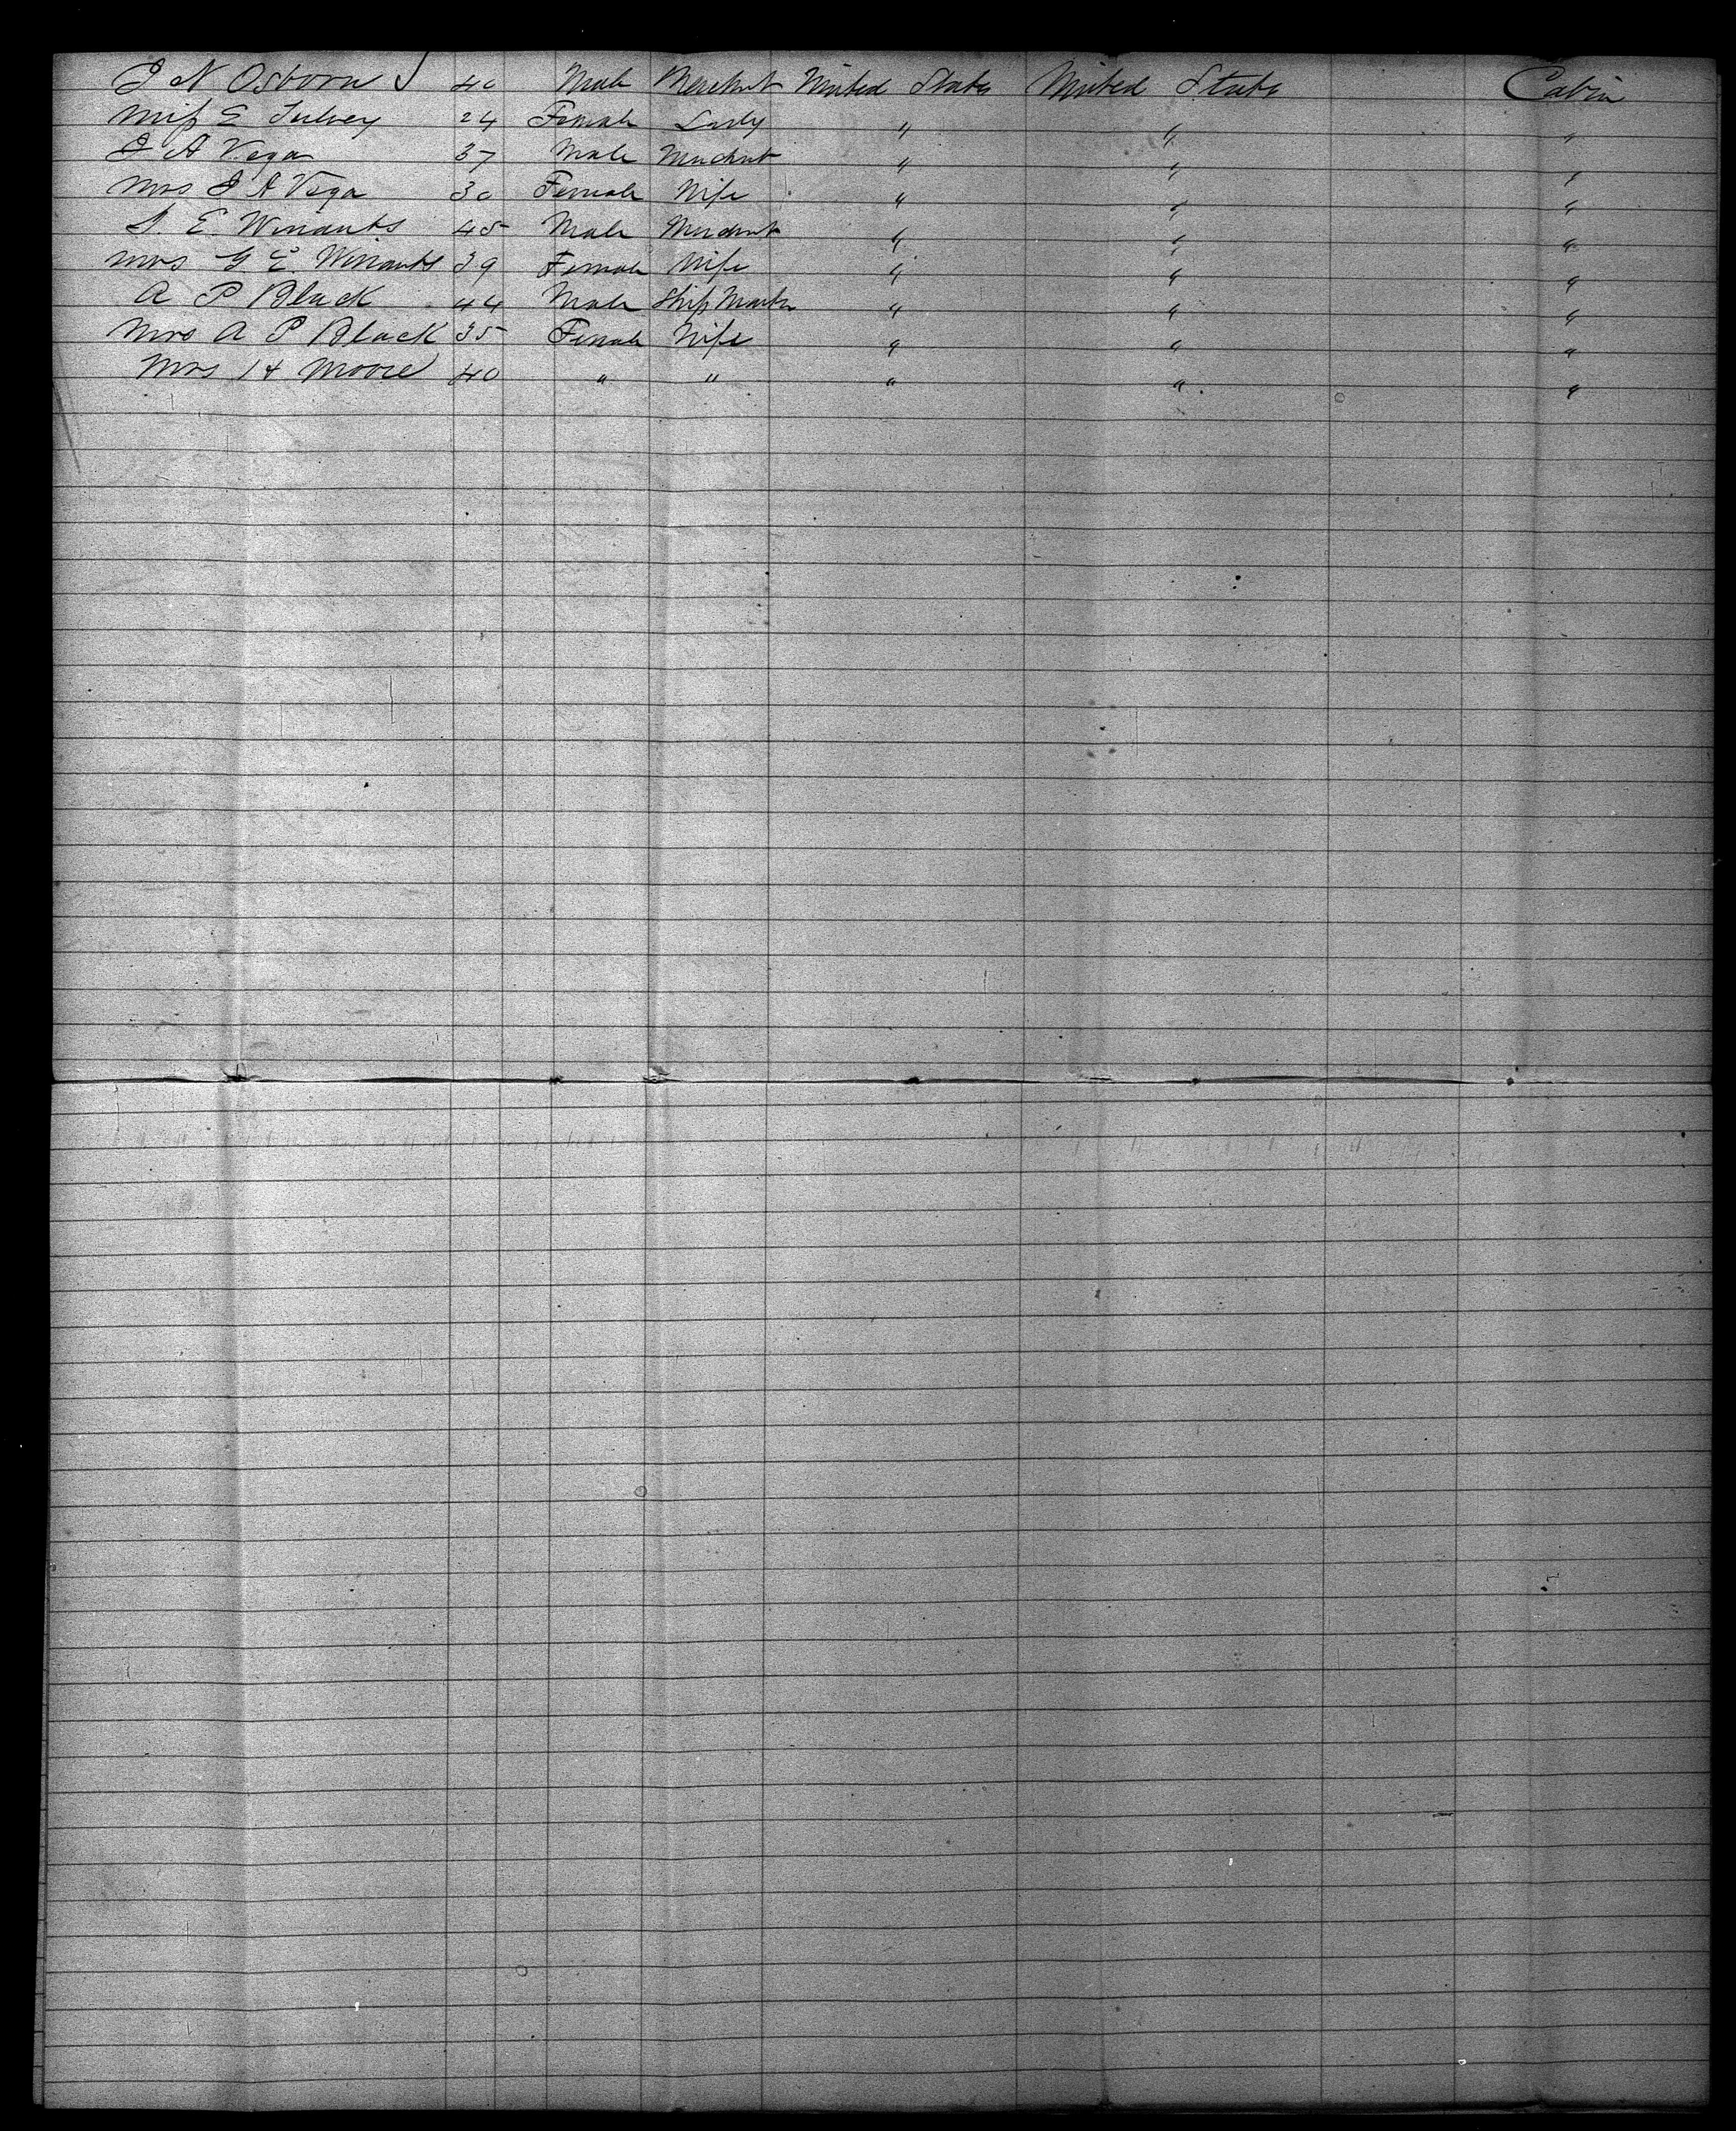 J N Osborn 40 Male Merchnt United States United States Cabin
Miss E Tulvey 24 Female Lady " " "
J A Vega 37 Male Merchnt " " "
Mrs J A Vega 30 Female Wife " " "
G. E. Winants 45 Male Merchnt " " "
Mrs G. E. Winants 39 Female Wife " " "
A P Black 44 Male Ship Master " " "
Mrs A P Black 35 Female Wife " " "
Mrs H Moore 40 " " " " "